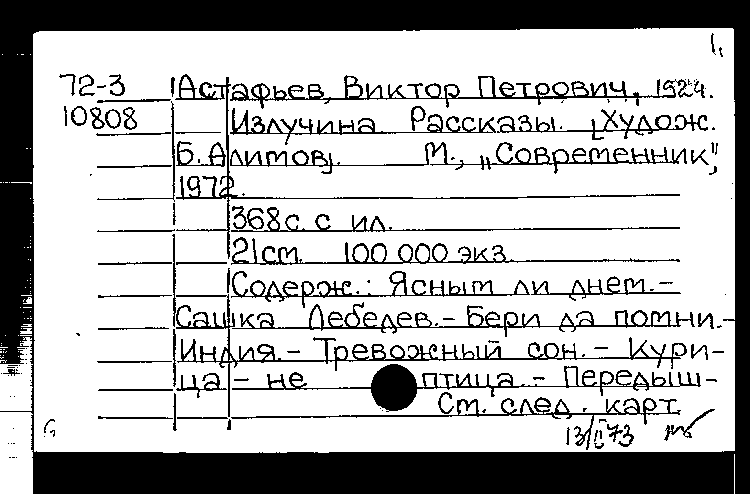 72-3 Астафьев, Виктор Петрович, 1924.
10808 Излучина Рассказы. [Худож.
Б. Алимов]. М., „Современник",
1972.
368с. с ил.
21см. 100 000 экз.
Содерж.: Ясным ли днем.-
Сашка Лебедев.- Бери да помни.-
Индия.- Тревожный сон.- Кури-
ца - не птица.- Передыш-
См. след. карт.
13/II 73